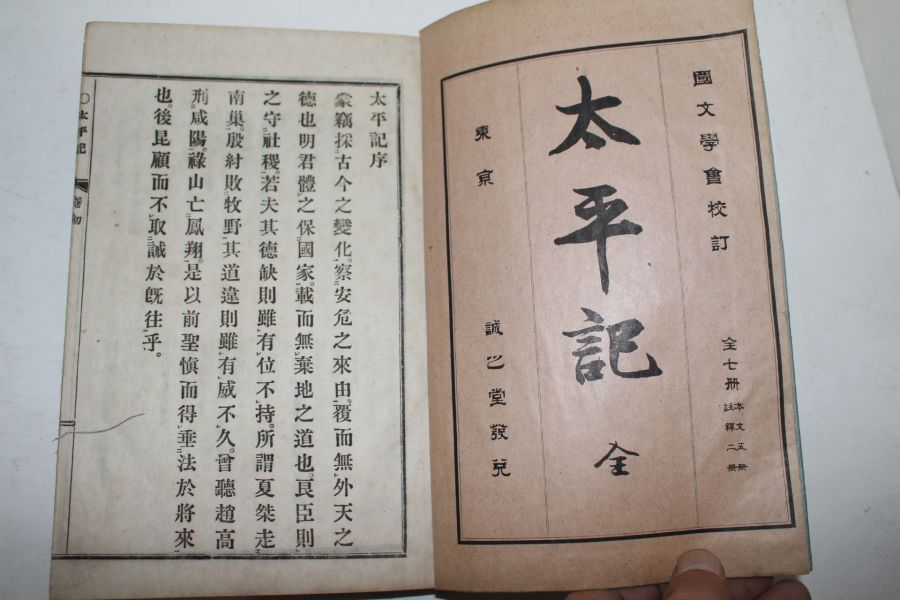 國文學會校訂
全七册
本文五册
註釋二册
太平記
全
東京
誠之堂發兌
太平記序
蒙竊採古今之變化。察安危之來由。覆而無外天之
德也明君體之保國家。載而無棄地之道也。良臣則
之守社稷。若夫其德缺則雖有位不持。所謂夏桀走
南巢。殷紂敗牧野。其道違則雖有威不久。曾聽趙高
刑咸陽。祿山亡鳳翔。是以前聖愼而得垂法於將來
也。後昆顧而不取誡於旣往乎。
○太平記
卷初